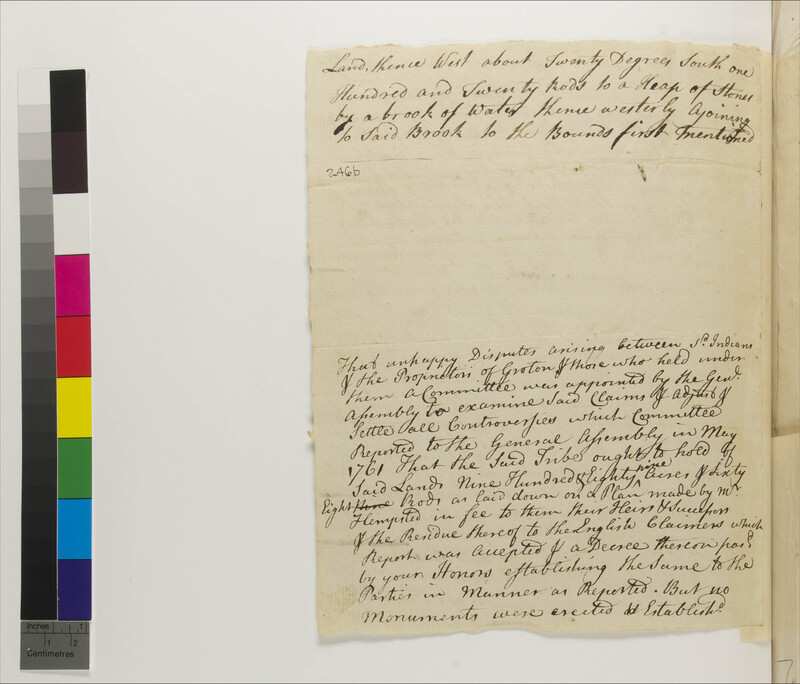 Land, thence West about Twenty Degrees South one
Hundred and Twenty Rods to a Heap of Stones
by a brook of Water thence westerly Ajoining
to Said Brook to the Bounds first mentioned
246b
That unhappy Disputes arising between Sd. Indians
& the Proprietors of Groton & those who held under
them a Committee was appointed by the Genl.
Assembly to examine Said Claims & Adjust &
Settle all Controversies which Committee
Reported to the General Assembly in May
1761 That the Said Tribe ought to hold of
Said Lands Nine Hundred & Eighty nine Acres & Sixty
Eight Rods as laid down on a Plan made by Mr.
Hempsted in fee to them their Heirs & Successors
& the Residue thereof to the English Claimers which
Report was accepted & a Decree thereon pasd.
by your Honors establishing the Same to the
Parties in Manner as Reported. But no
Monuments were erected & Establishd.
Inches 1
1 2
Centimetres